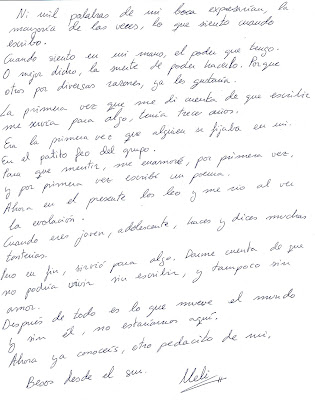 Ni mil palabras de mi boca expresarían, la
mayoría de las veces, lo que siento cuando
escribo.
Cuando siento en mi mano, el poder que tengo.
O mejor dicho, la suerte de poder hacerlo. Porque
otros por diversas razones, ya les gustaría.
La primera vez que me di cuenta de que escribir
me servía para algo, tenía trece años.
Era la primera vez que alguien se fijaba en mi.
En el patito feo del grupo.
Para que mentir, me enamoré, por primera vez,
y por primera vez escribí un poema.
Ahora en el presente los leo y me rio al ver
la evolución.
Cuando eres joven, adolescente, haces y dices muchas
tonterías.
Pero en fin, sirvió para algo. Darme cuenta de que
no podría vivir sin escribir, y tampoco sin
amor.
Después de todo es lo que mueve el mundo
y sin él, no estaríamos aquí.
Ahora ya conoceis, otro pedacito de mi.
Besos desde el sur.
Meli